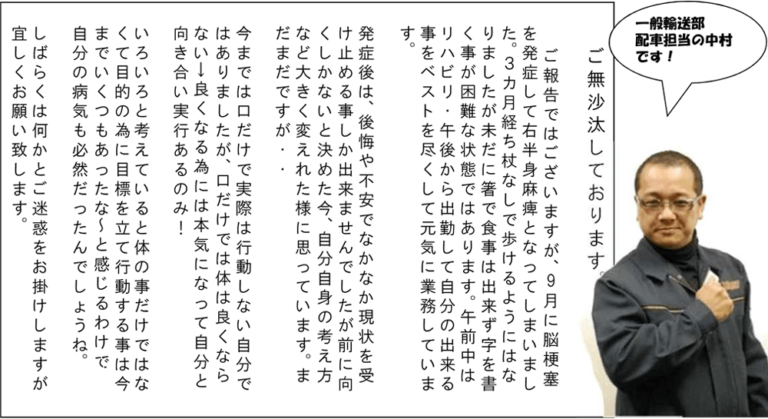 一般輸送部
配車担当の中村
です！
ご無沙汰しております。
ご報告ではございますが、9月に脳梗塞
を発症して右半身麻痺となってしまいまし
た。3カ月経ち杖なしで歩けるようにはな
りましたが未だに箸で食事は出来ず字を書
く事が困難な状態ではあります。午前中は
リハビリ・午後から出勤して自分の出来る
事をベストを尽くして元気に業務していま
す。
発症後は、後悔や不安でなかなか現状を受
け止める事しか出来ませんでしたが前に向
くしかないと決めた今、自分自身の考え方
など大きく変えれた様に思っています。ま
だまだですが・・
今までは口だけで実際は行動しない自分で
はありましたが、口だけでは体は良くなら
ない→良くなる為には本気になって自分と
向き合い実行あるのみ！
いろいろと考えていると体の事だけではな
くて目的の為に目標を立て行動する事は今
までいくつもあったな～と感じるわけで
自分の病気も必然だったんでしょうね。
しばらくは何かとご迷惑をお掛けしますが
宜しくお願い致します。